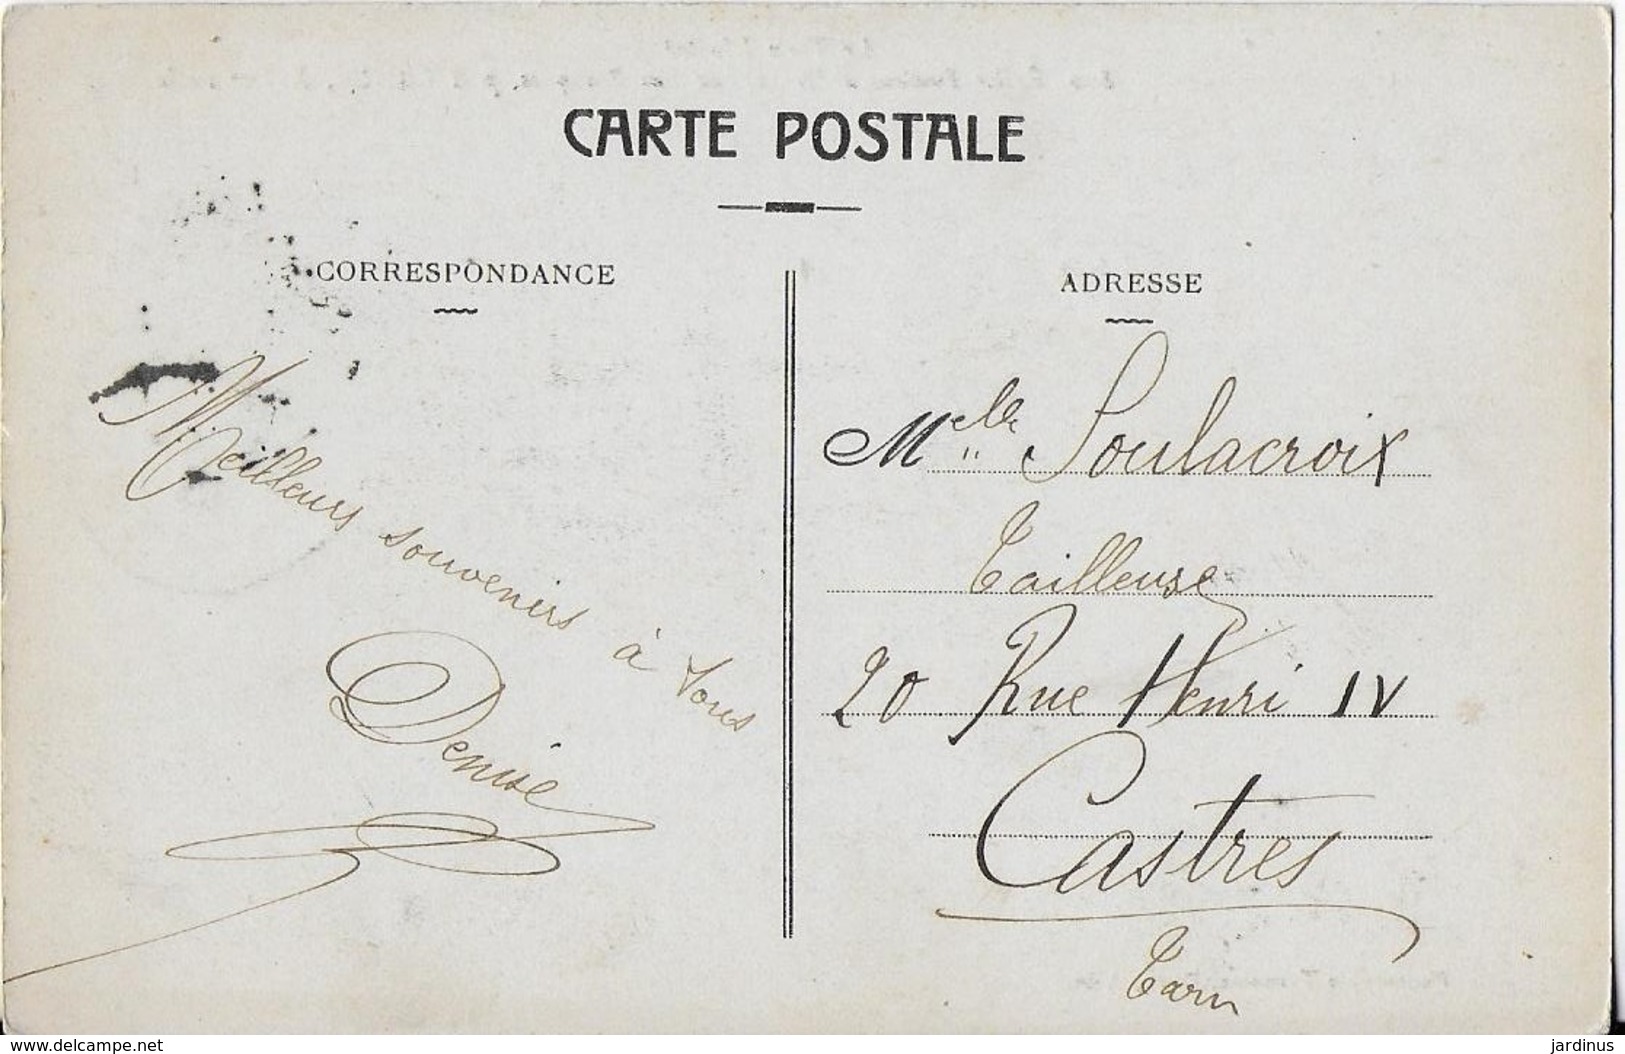 CARTE POSTALE
CORRESPONDANCE
ADRESSE
Meilleurs souvenirs à tous
Denise
Melle Soulacroix
Tailleuse
20 Rue Henri IV
Castres
Tarn
www.delcampe.net
jardinus